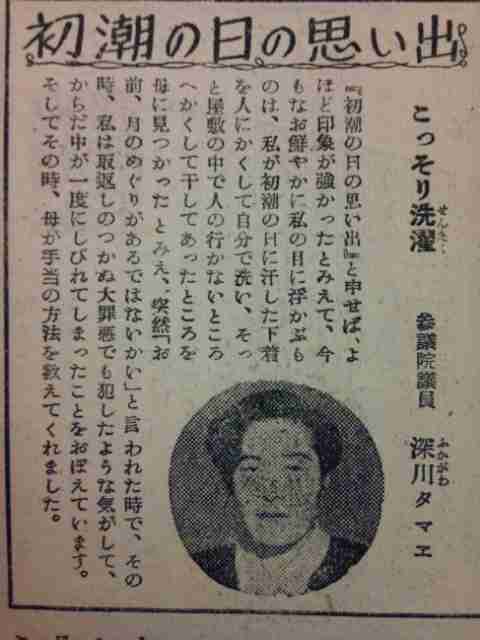 初潮の日の思い出
こっそり洗濯
参議院議員 深川タマヱ
ふかがわ
『初潮の日の思い出』と申せば、よ
ほど印象が強かったとみえて、今
もなお鮮やかに私の目に浮かぶも
のは、私が初潮の日に汗した下着
を人にかくして自分で洗い、そっ
と屋敷の中で人の行かないところ
へかくして干してあったところを
母に見つかったとみえ、突然「お
前、月のめぐりがあるではないかい」と言われた時で、その
時、私は取返しのつかぬ大罪悪でも犯したような気がして、
からだ中が一度にしびれてしまったことをおぼえています。
そしてその時、母が手当の方法を教えてくれました。